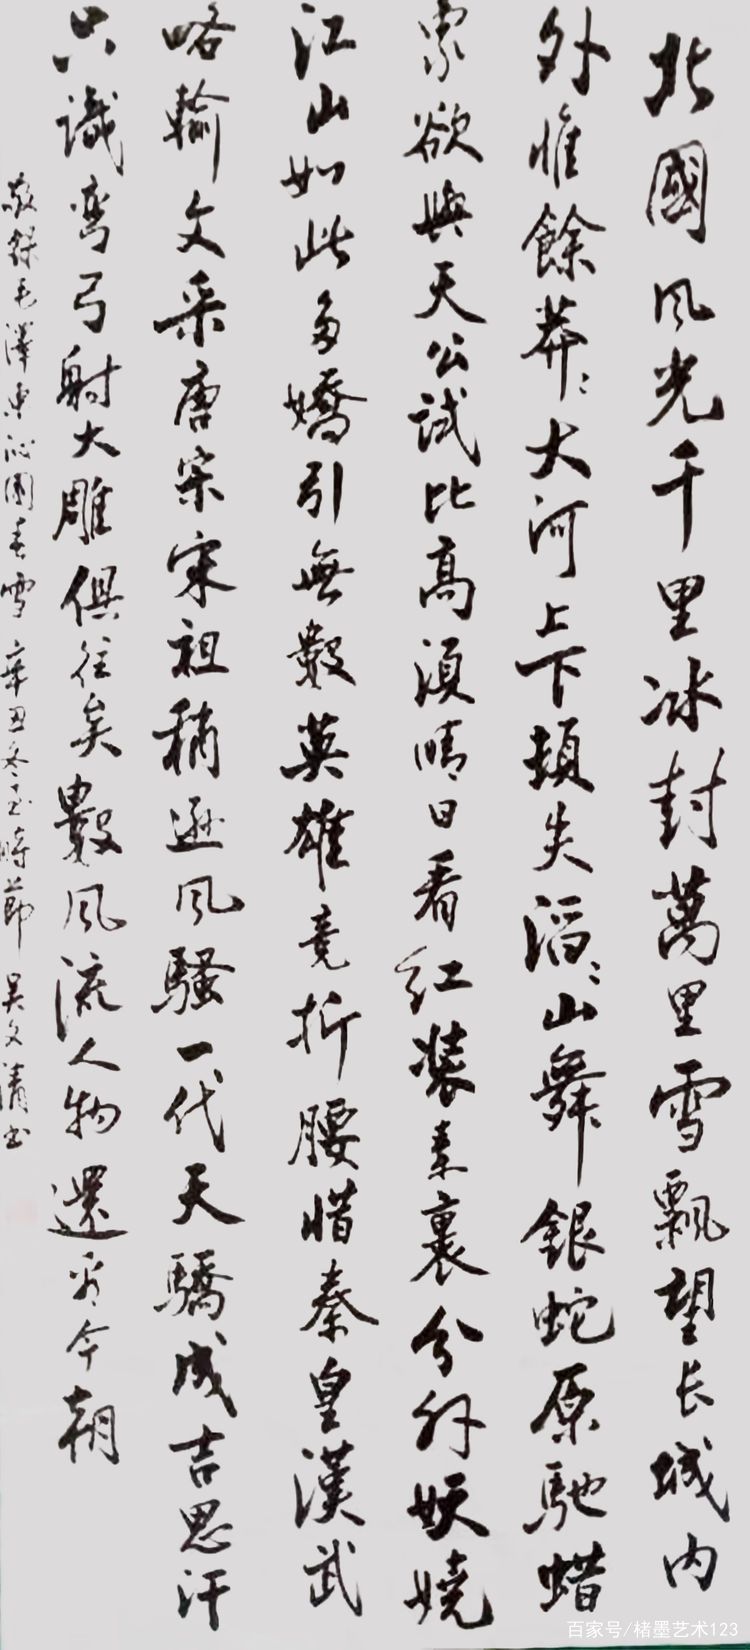 北國风光千里冰封萬里雪飄望长城内
外惟餘莽〻大河上下頓失滔〻山舞銀蛇原馳蜡
象欲與天公試比高須晴日看红装素裹分外妖嬈
江山如此多嬌引無數英雄竞折腰惜秦皇漢武
略輸文采唐宗宋祖稍逊风騷一代天驕成吉思汗
只識弯弓射大雕俱往矣數风流人物還看今朝
敬録毛澤東沁園春雪 辛丑冬至時節 吴文清书
百家号/楮墨艺术123